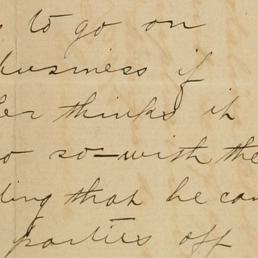 to go on
business if
thinks it
so—with the
that he can
parties off